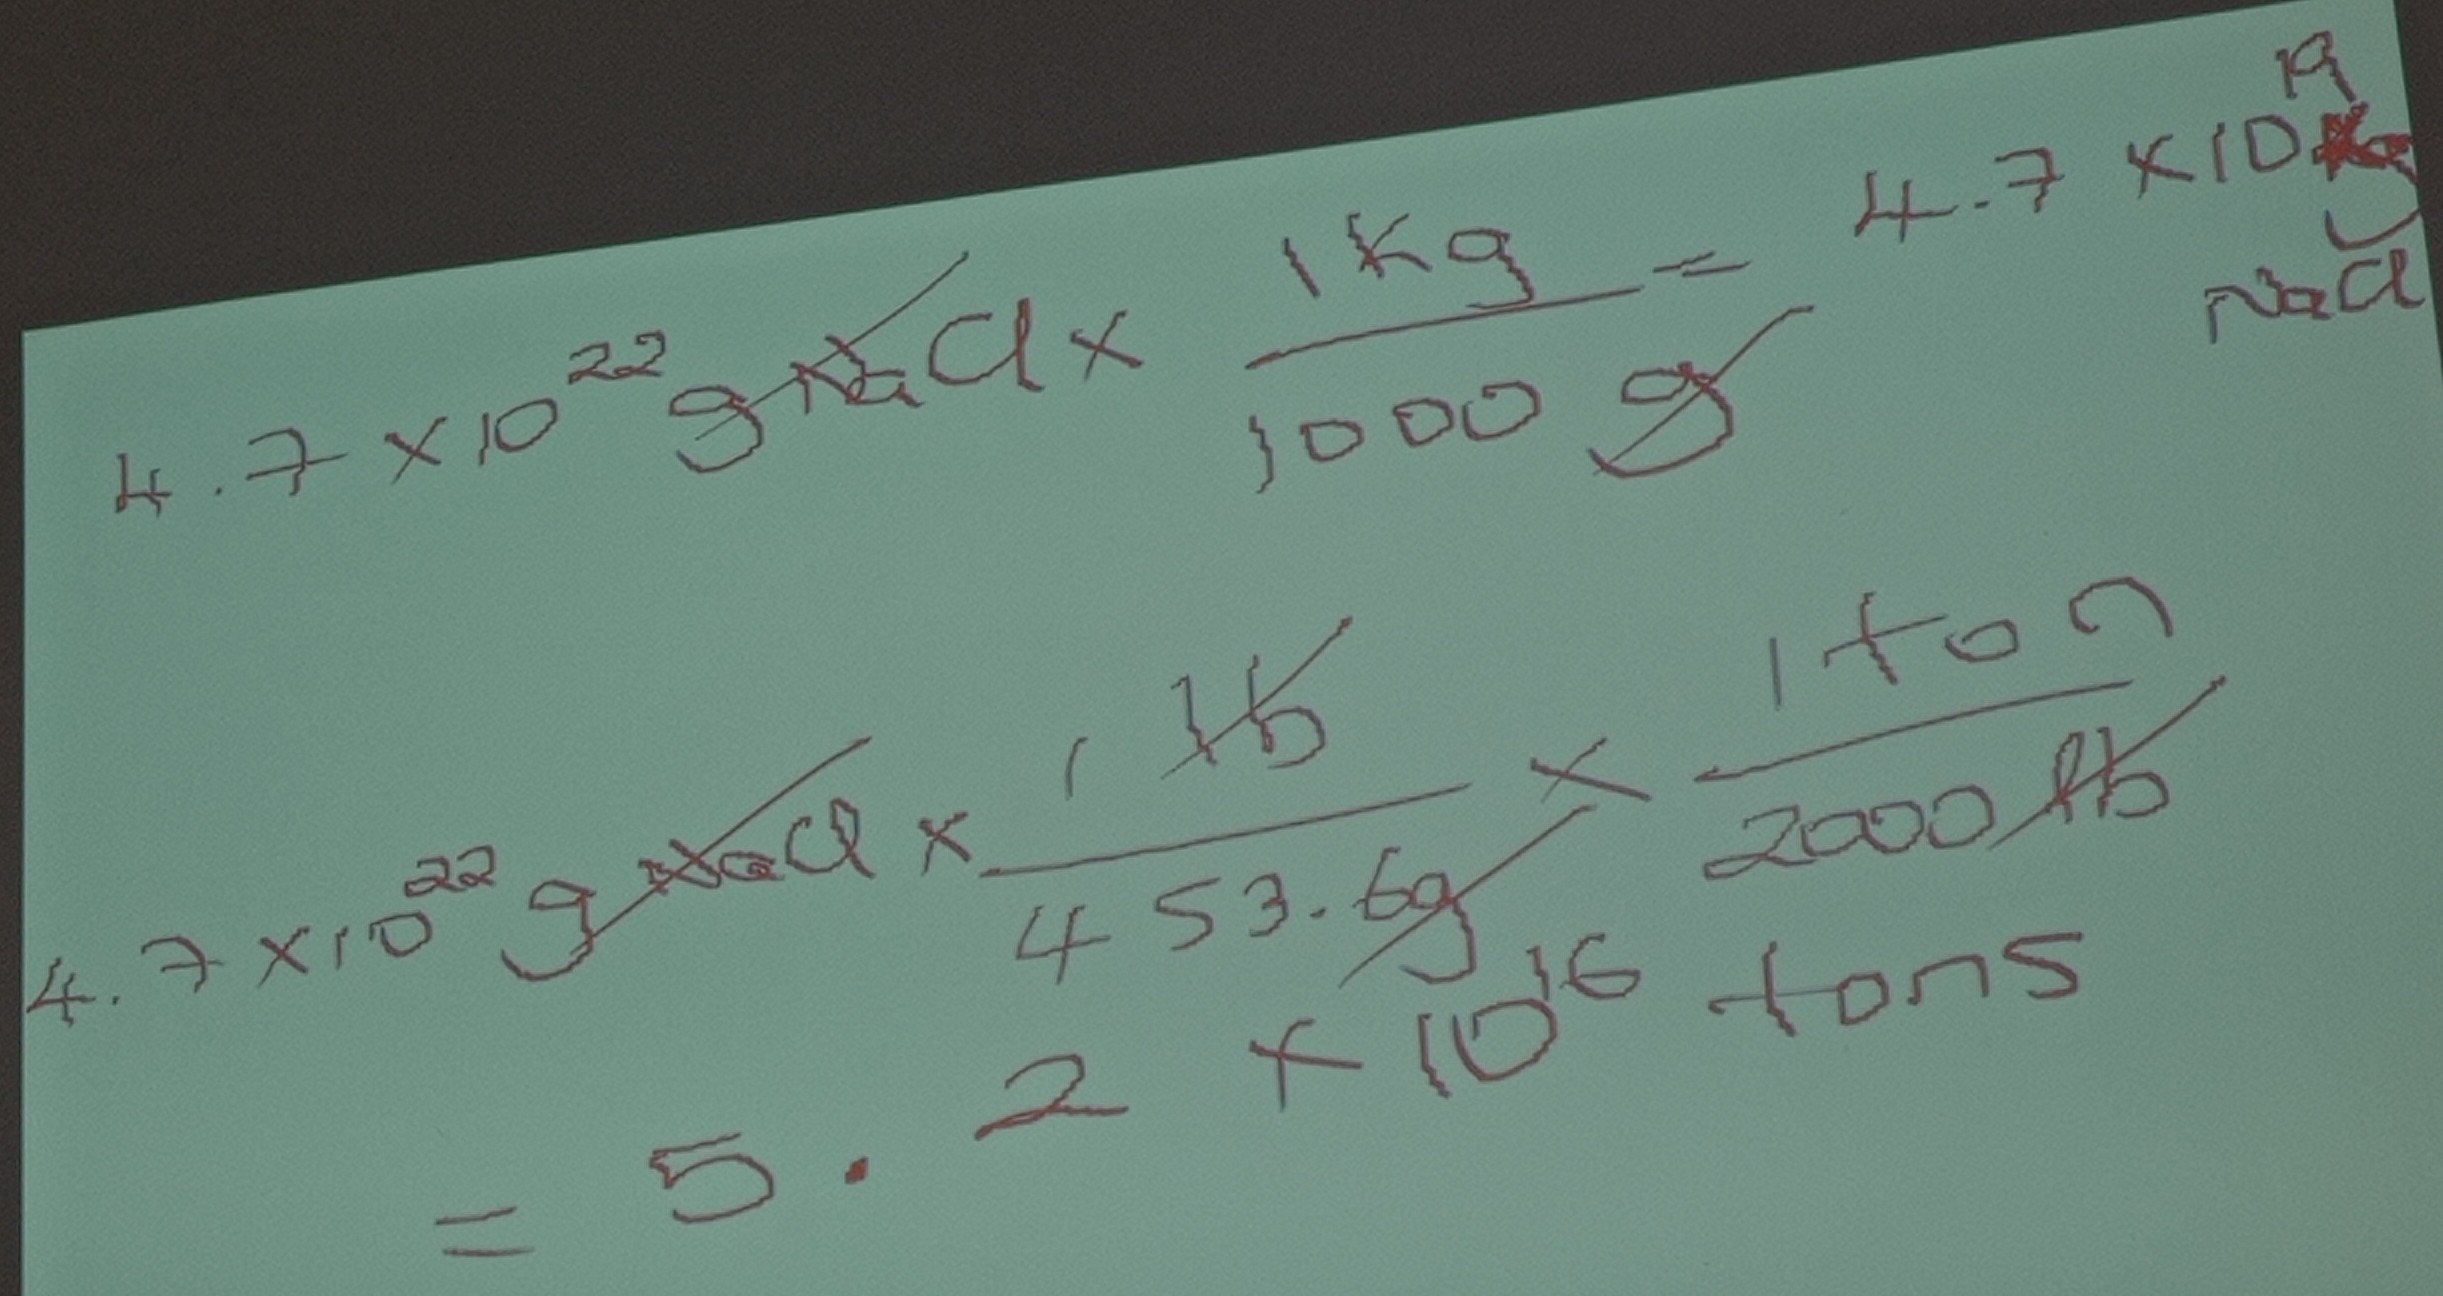 4.7 × 10^22 g NaCl × 1 Kg / 1000 g = 4.7 × 10^19 Kg NaCl
4.7 × 10^22 g NaCl × 1 lb / 453.6g × 1 ton / 2000 lb
= 5.2 × 10^16 tons